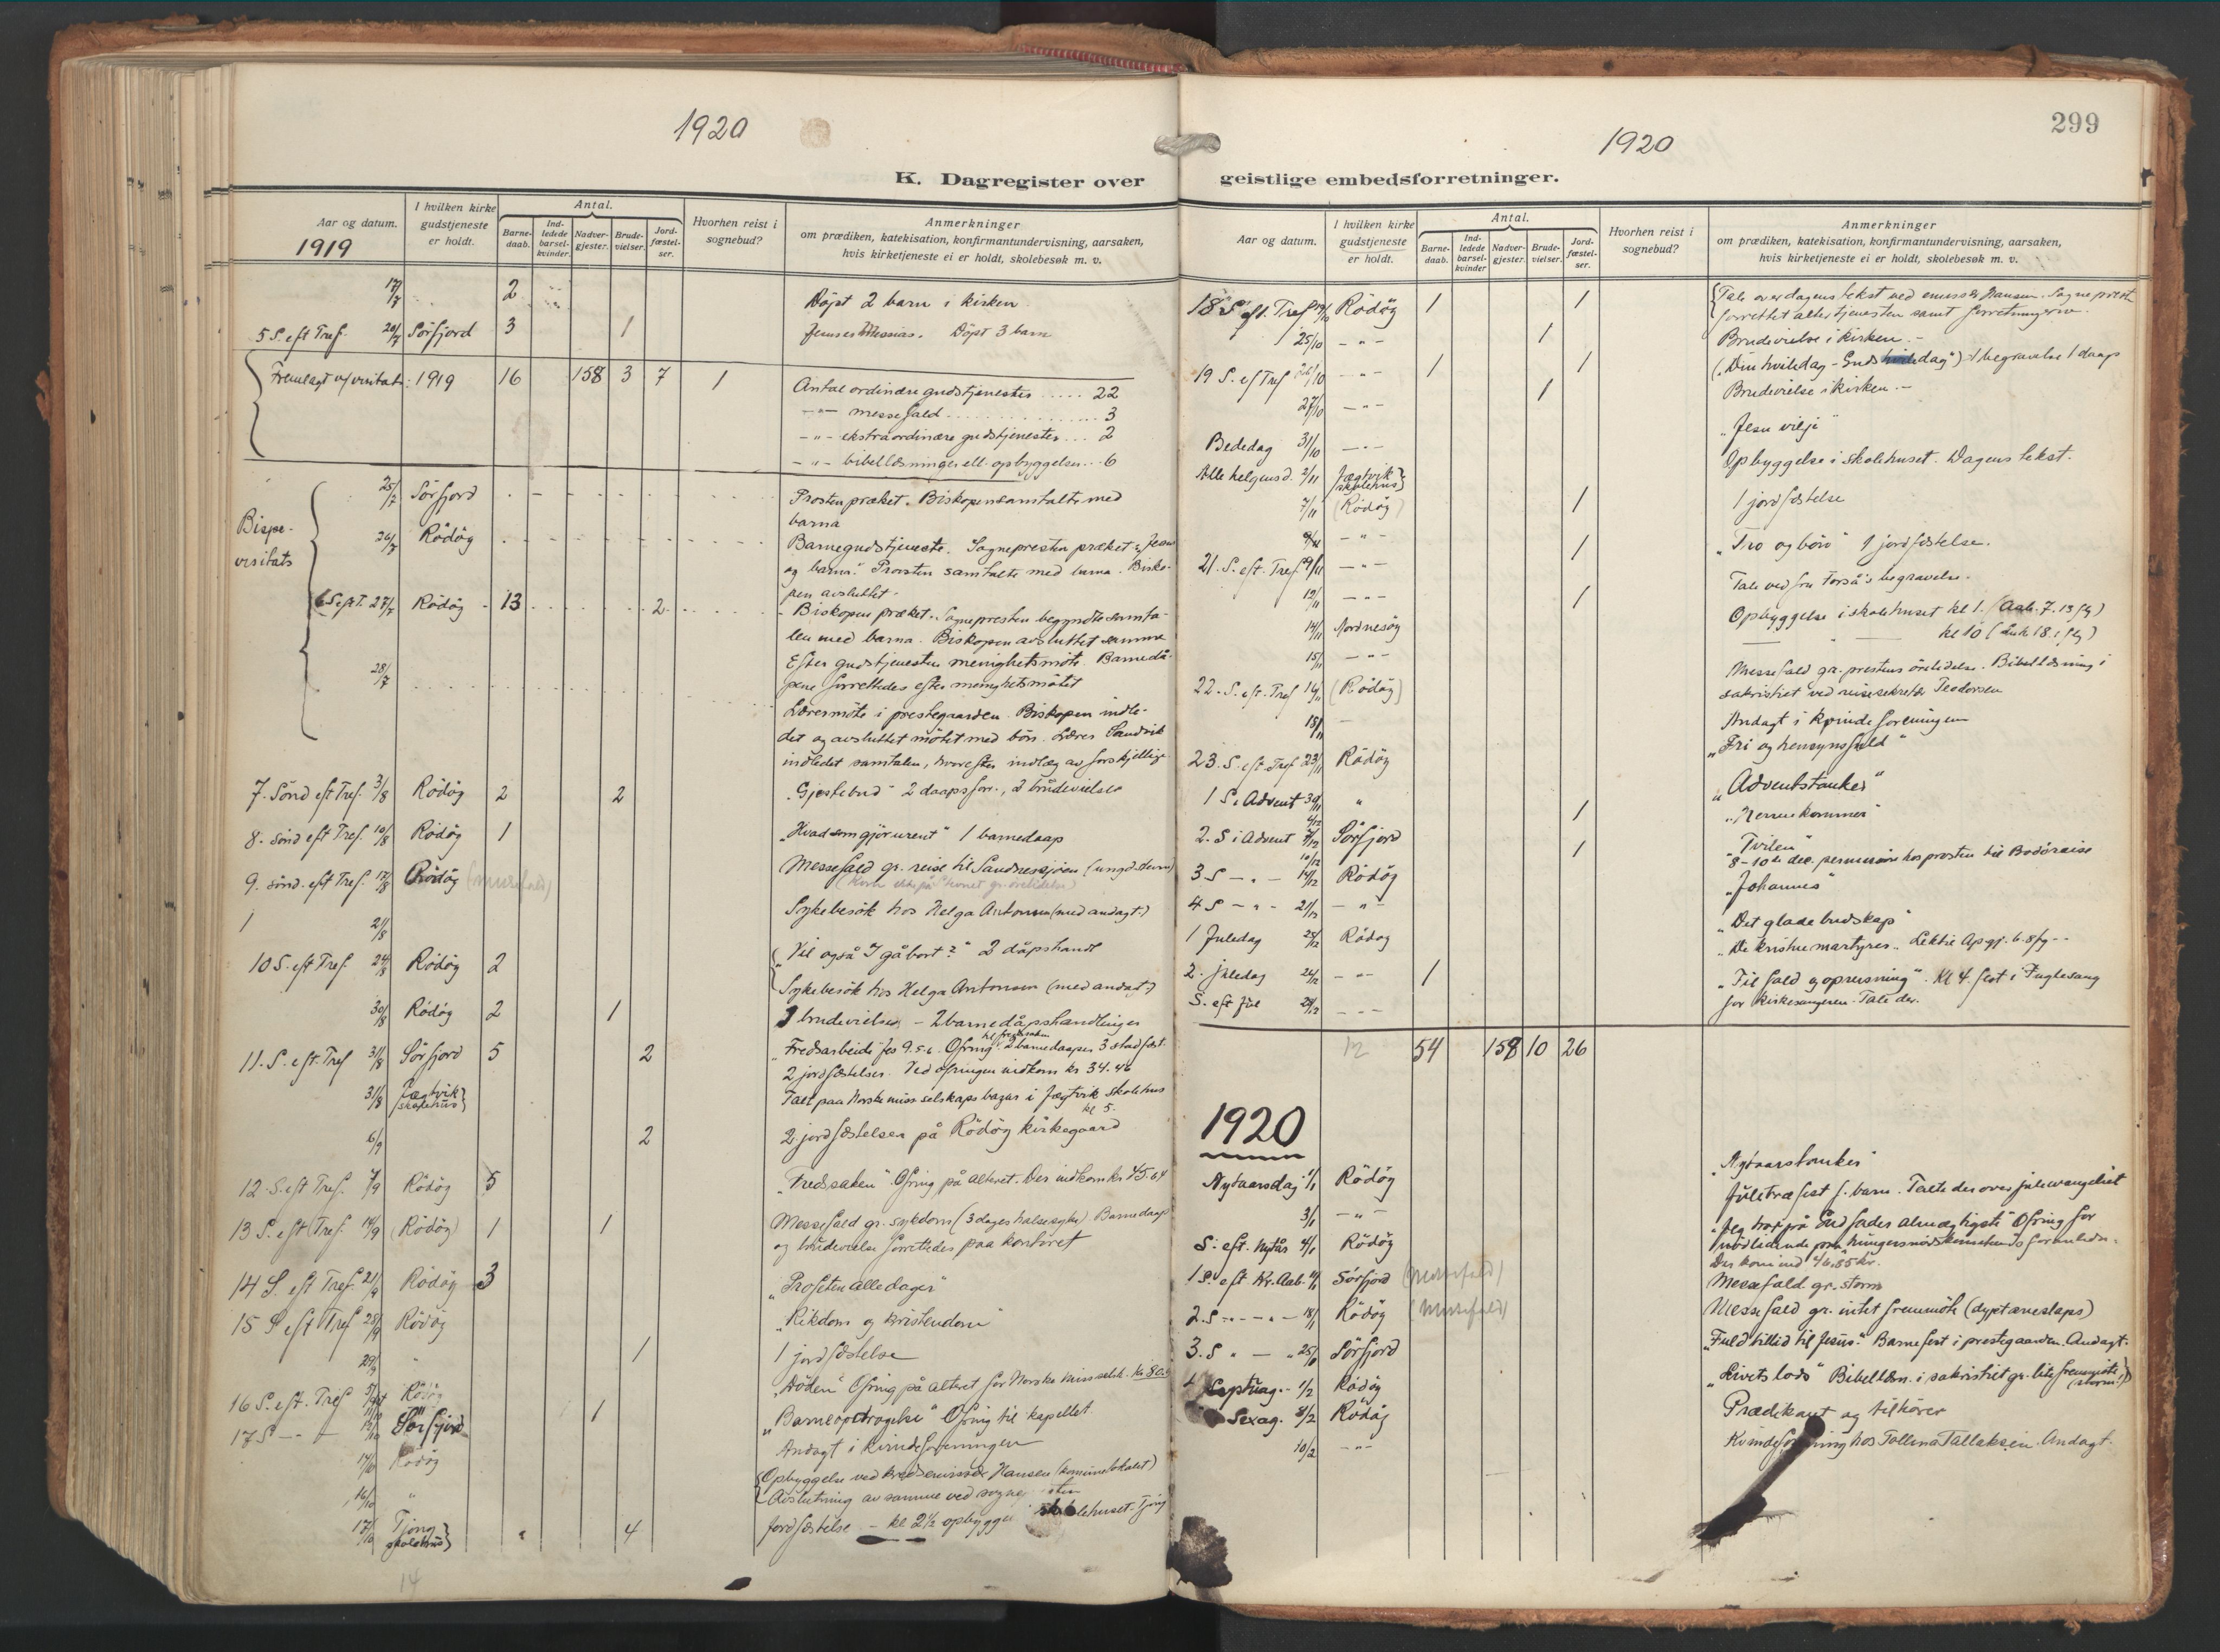 1920
K. Dagregister over
Aar og datum.
1919
I hvilken kirke gudstjeneste er holdt.
Antal.
Barne-daab.
Ind-ledede barsel-kvinder.
Nadver-gjester.
Brude-vielser.
Jord-fæstel-ser.
Hvorhen reist i sognebud?
Anmerkninger
om prædiken, katekisation, konfirmantundervisning, aarsaken,
hvis kirketjeneste ei er holdt, skolebesøk m. v.
17/7 2 Döpt 2 barn i kirken
5 S. eft Tref. 20/7 Sörfjord 3 1 Messias. Döpt 3 barn
Fremlagt v/ visitats: 1919 16 158 3 7 1 Antal ordinære gudstjenester ..... 22
-"- messefald ..... 3
-"- ekstraordinære gudstjenester ... 2
-"- bibellæsninger ell. opbyggelser ... 6
Bispe-
visitats
25/7 Sörfjord Prosten præket. Biskopen samtalte med
barna
26/7 Rödög Barnegudstjeneste. Sognepresten præket "Jesu
og barna". Prosten samtalte med barna. Bisko-
pen avsluttet.
6 S. eft. T. 27/7 Rödög 13 2 Biskopen præket. Sognepresten begyndte samta-
len med barna. Biskopen avsluttet samme
Efter gudstjenesten menighetsmöte. Barnedå-
pene forrettedes efter menighetsmötet
28/7 Læremöte i prestegaarden. Biskopen indle-
det og avsluttet mötet med bön. Lærer Sandvik
indledet samtalen, hvorefter indlæg av forskjellige
7. Sönd eft Tref. 3/8 Rödög 2 2 "Gjestebud" 2 daapsforr., 2 brudevielser
8. sönd eft Tref. 10/8 Rödög 1 "Hvad som gjör urent" 1 barnedaap
9. sönd. eft Tref. 17/8 Rödög (messefald) Messefald gr. reise til Sandnessjöen (ungd.stevne)
21/8 Sykebesök hos Helga Antonsen (med andagt)
10 S. eft Tref. 24/8 Rödög 2 "Vil også I gå bort?" 2 dåpshandl
Sykebesök hos Helga Antonsen (med andagt)
30/8 Rödög 2 1 1 brudevielse - 2 barnedåpshandlinger
11. S. eft. Tref 31/8 Sörfjord 5 2 "Fredsarbeide" Jes 9.5-6. Ofring til fredssaken 2 barnedaaper 3 stadfæst.
2 jordfæstelser. Ved ofringen indkom kr 34.46
31/8 Jægtvik skolehus Talt paa Norske miss selskaps bazar i Jægtvik skolehus
kl 5.
6/9 2 2 jordfæstelser på Rödög kirkegaard
12. S. eft Tref. 7/9 Rödög 5 "Fredssaken" Ofring på alteret. Der indkom kr 45.64
13 S. eft Tref 14/9 (Rödög) 1 1 Messefald gr. sykdom (3 dages halsesyke) Barnedaap
og brudevielse forrettedes paa kontoret
14 S. eft Tref 21/9 Rödög 3 "Profeten alle dager"
15 S eft Tref 28/9 Rödög "Rikdom og kristendom"
29/9 " 1 1 jordfæstelse
16 S. eft. Tref 5/10 Rödög "Döden" Ofring på alteret for Norske miss selsk.
17 S -"- 12/10 Sörfjord 1 "Barneopdragelse" Ofring til kapellet
14/10 Rödög Andagt i kvindeforeningen
16/10 " Opbyggelse ved kredsemissær Hansen (komunelokalet)
Avslutning av samme ved
17/10 Tjong skolehus 4 Jordfæstelse - kl 2½ skolehuset Tjong
14
299
1920
geistlige embedsforretninger.
Aar og datum.
I hvilken kirke gudstjeneste er holdt.
Antal.
Barne-daab.
Ind-ledede barsel-kvinder
Nadver-gjester.
Brude-vielser.
Jord-fæstel-ser.
Hvorhen reist i sognebud?
Anmerkninger
om prædiken, katekisation, konfirmantundervisning, aarsaken,
hvis kirketjeneste ei er holdt, skolebesøk m. v.
18 S. eft. Tref 19/10 Rödög 1 1 Tale over dagens tekst ved emissær Hansen. Sogneprest
forrettet altertjenesten samt forretningerne.
25/10 -"- 1 Brudevielse i kirken.-
19 S. ef Tref 26/10 -"- 1 1 ("Din hviledag - Guds hviledag") 1 begravelse 1 daap
27/10 -"- 1 Brudevielse i kirken.-
Bededag 31/10 -"- "Jesu vilje"
Alle helgensd. 2/11 Jægtvik skolehus Opbyggelse i skolehuset. Dagens tekst.
7/11 (Rödög) 1 1 jordfæstelse
-"- 1 "Tro og bön" 1 jordfæstelse.
21. S. eft. Tref 9/11 -"- Tale ved fru Forså's begravelse.
12/11 -"- 1 Opbyggelse i skolehuset kl 1. (Aab. 7. 13 flg)
14/11 Nordnesög kl 10 (Luk 18. 1 flg)
15/11 -"-
22. S. eft. Tref 16/11 (Rödög) Messefald gr. prestens Bibellæsning i
sakristiet ved reisesekretær Teodorsen
18/11 - Andagt i Kvindeforeningen
23. S. eft Tref 23/11 Rödög "Fri og hensynsfuld"
1 S. i Advent 30/11 " 1 "Adventstanker"
2. S i Advent 7/12 Sörfjord 1 "Herren kommer"
"Tvilen"
8-10de dec. permisjon hos prosten til Bodöreise
3 S -"- 14/12 Rödög "Johannes"
4 S -"- 21/12 -"- "Det glade budskap"
1 Juledag 25/12 Rödög "De kristne martyrer". Lektie Ap gj. 6. 8 flg--
2. juledag 26/12 -"- 1 "Til fald og opreisning". Kl 4 fest i Fuglesang
S. eft Jul 28/12 -"- for kirkesangeren. Tale der.
12 54 158 10 26
1920
Nytaarsdag 1/1 Rödög "Nytaarstanker"
3/1 -"- Juletræfest f. barn. Talte der over juleevangeliet
S. eft. Nytår 4/1 Rödög "Jeg tror på Gud fader almægtigste" Ofring for
nödlidende
Der kom ind 46.85 kr.
1 S. eft Kr. Aab. 11/1 Sörfjord (messefald) Messefald gr. storm
2. S -"- 18/1 Rödög (messefald) Messefald gr. intet fremmöte
3. S " - " 25/1 Sörfjord "Fuld tillid til Jesus." Barnefest i prestegaarden. Andagt.
Septuag. 1/2 Rödög "Livets lods" Bibellæsn. i sakristiet gr. lite fremmöte (storm!)
Sexag. 8/2 Rödög Prædikant og tilhörer
10/2 -"- Kvindeforening hos Tallaksen. Andagt.